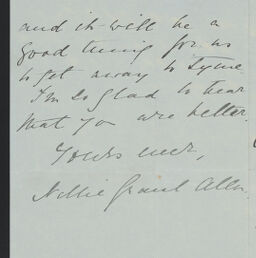 and it will be a
good thing for us
to get away to Lyme.
I'm so glad to hear
that you are better.
Yours ever,
Nellie Grant Allen.